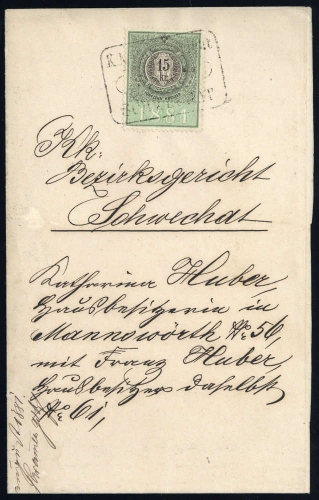 15
KR.
1881
Kk:
Bezirksgericht
Schwechat
Katharina Huber,
Hausbesitzerin in
Mannswörth No: 56,
mit Franz Huber,
Hausbesitzer daselbst
No: 61,